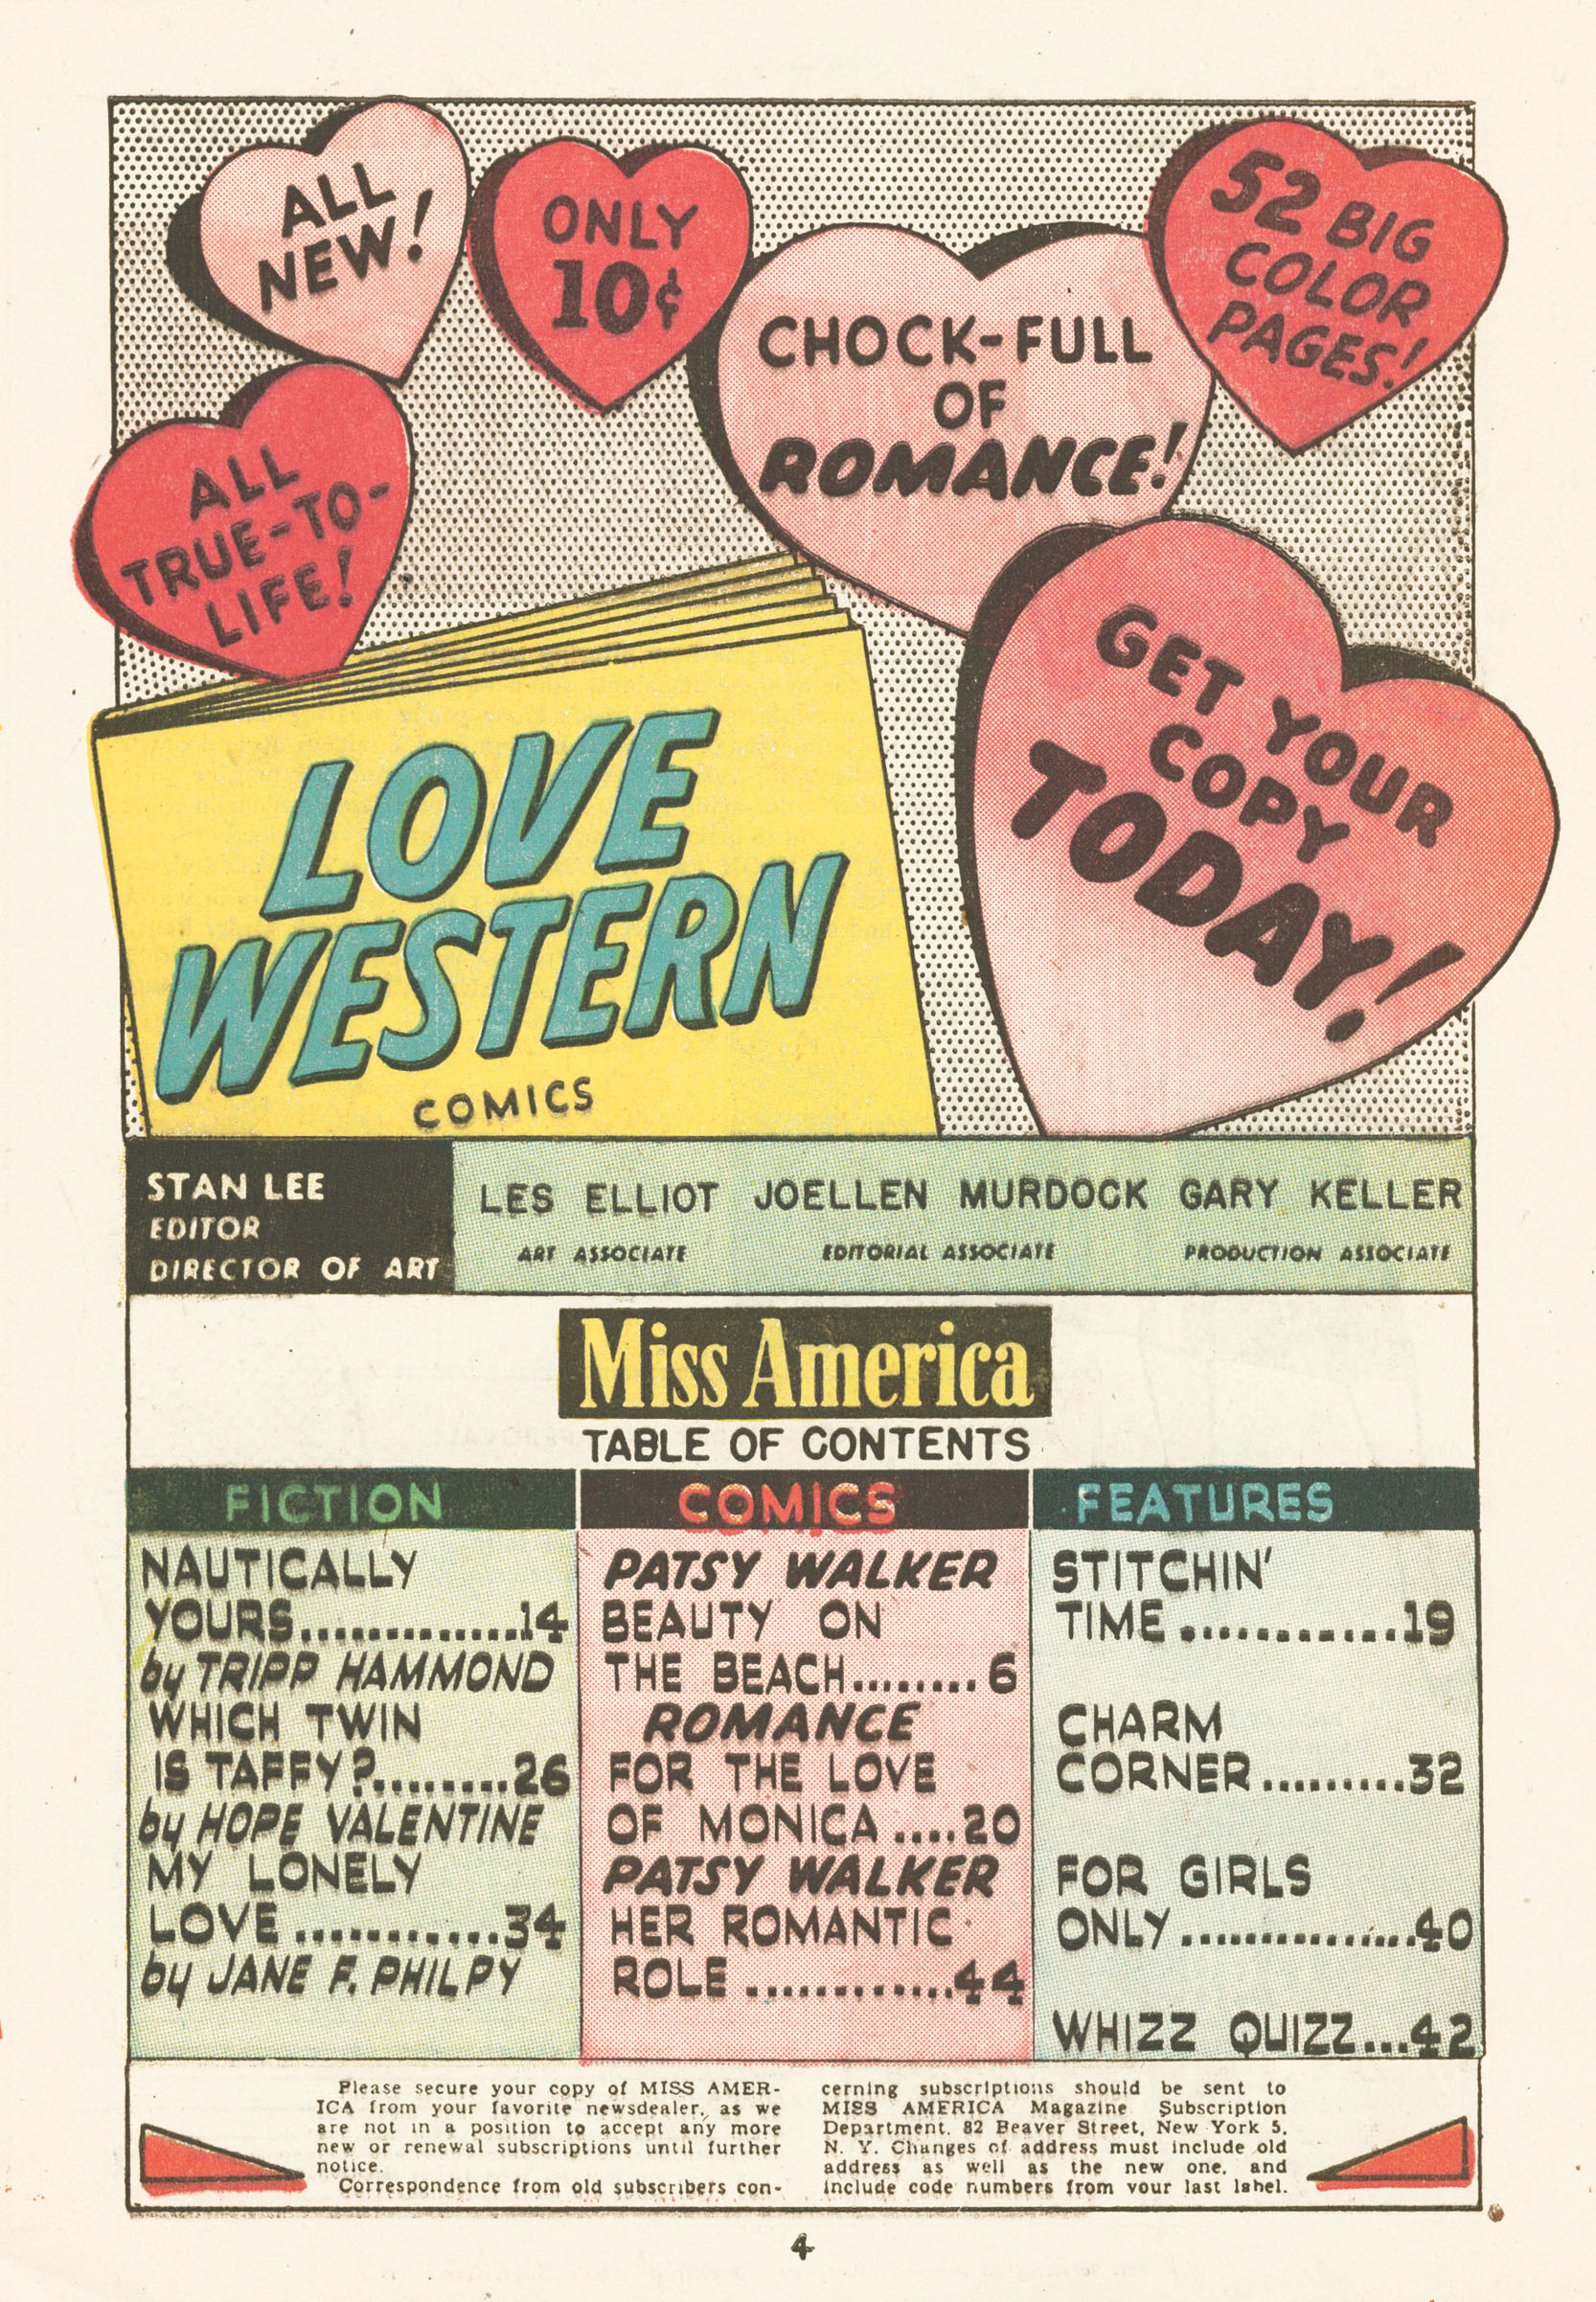 ALL
NEW!
ONLY
10¢
CHOCK-FULL
OF
ROMANCE!
52 BIG
COLOR
PAGES!
ALL
TRUE-TO-
LIFE!
GET YOUR
COPY
TODAY!
LOVE
WESTERN
COMICS
STAN LEE
EDITOR
DIRECTOR OF ART
LES ELLIOT
ART ASSOCIATE
JOELLEN MURDOCK
EDITORIAL ASSOCIATE
GARY KELLER
PRODUCTION ASSOCIATE
Miss America
TABLE OF CONTENTS
FICTION
NAUTICALLY
YOURS..............14
by TRIPP HAMMOND
WHICH TWIN
IS TAFFY?.........26
by HOPE VALENTINE
MY LONELY
LOVE............34
by JANE F. PHILPY
COMICS
PATSY WALKER
BEAUTY ON
THE BEACH........6
ROMANCE
FOR THE LOVE
OF MONICA....20
PATSY WALKER
HER ROMANTIC
ROLE.............44
FEATURES
STITCHIN'
TIME.............19
CHARM
CORNER.........32
FOR GIRLS
ONLY...............40
WHIZZ QUIZZ...42
Please secure your copy of MISS AMER-
ICA from your favorite newsdealer, as we
are not in a position to accept any more
new or renewal subscriptions until further
notice.
Correspondence from old subscribers con-
cerning subscriptions should be sent to
MISS AMERICA Magazine Subscription
Department, 82 Beaver Street, New York 5,
N. Y. Changes of address must include old
address as well as the new one, and
include code numbers from your last label.
4